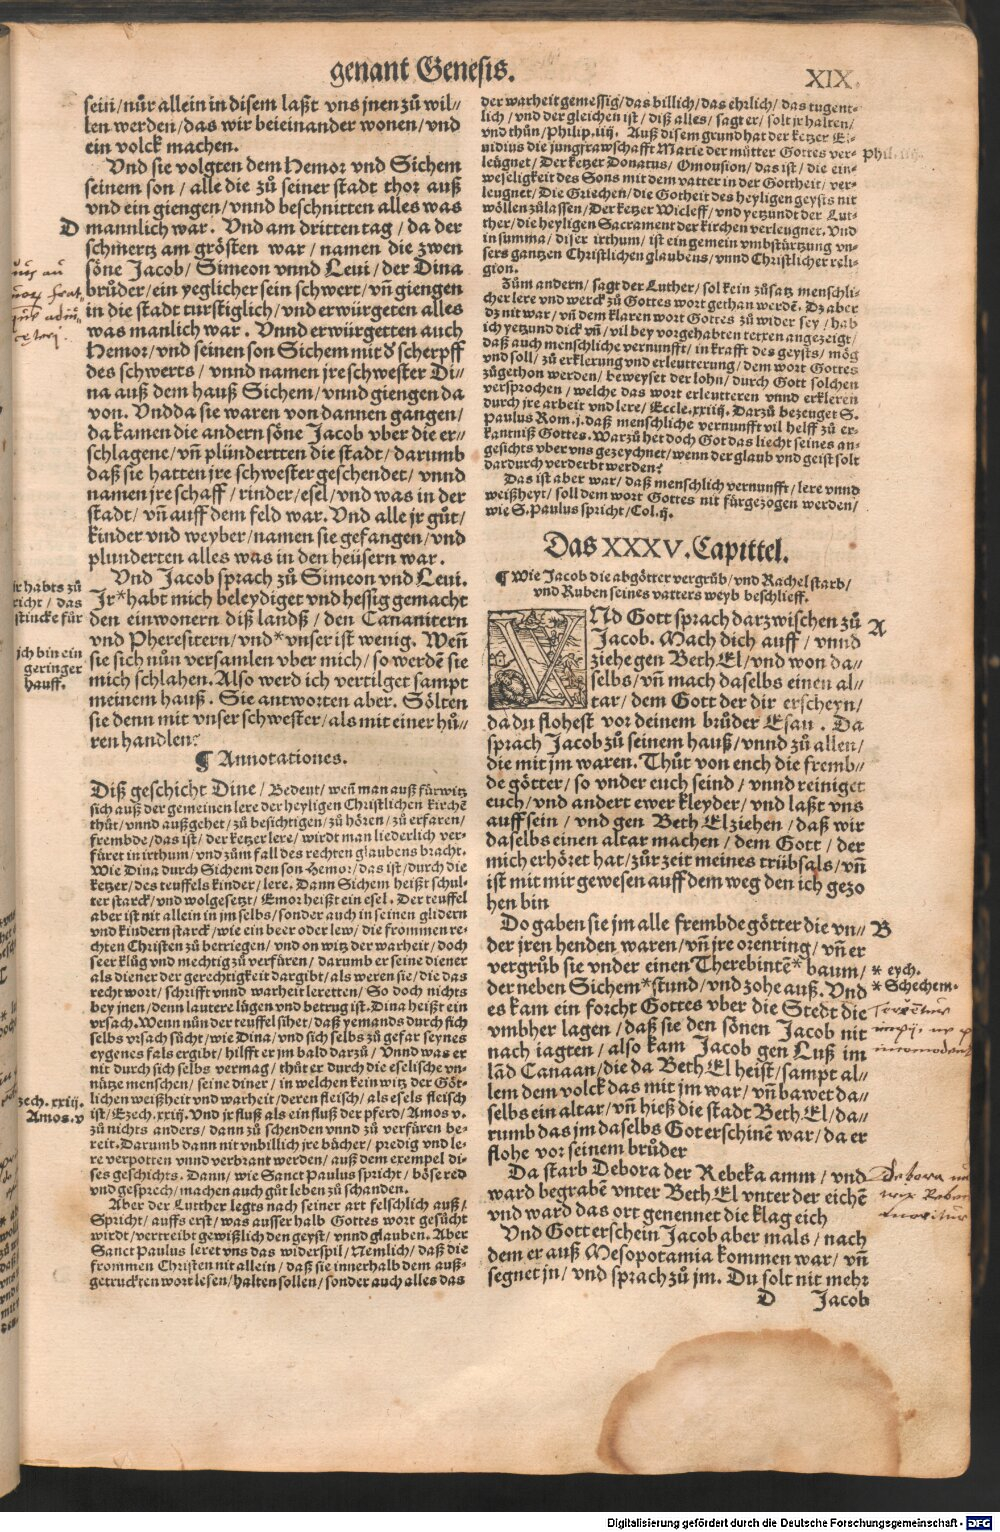 genant Genesis.
XIX.
sein/nůr allein in disem laßt vns jnen zů wil//
len werden/das wir beieinander wonen/vnd
ein volck machen.
Vnd sie volgten dem Hemor vnd Sichem
seinem son/alle die zů seiner stadt thor auß
vnd ein giengen/vnnd beschnitten alles was
D mannlich war. Vnd am dritten tag/da der
schmertz am grösten war/namen die zwen
söne Jacob/Simeon vnnd Leui/der Dina
brůder/ein yeglicher sein schwert/vñ giengen
in die stadt turstiglich/vnd erwürgeten alles
was manlich war. Vnnd erwürgetten auch
Hemor/vnd seinen son Sichem mit d̕ scherpff
des schwerts/vnnd namen jre schwester Di//
na auß dem hauß Sichem/vnnd giengen da
von. Vnd da sie waren von dannen gangen/
da kamen die andern söne Jacob vber die er//
schlagene/vñ plündertten die stadt/darumb
daß sie hatten jre schwester geschendet/vnnd
namen jre schaff/rinder/esel/vnd was in der
stadt/vñ auff dem feld war. Vnd alle jr gůt/
kinder vnd weyber/namen sie gefangen/vnd
plunderten alles was in den heüsern war.
Vnd Jacob sprach zů Simeon vnd Leui.
Jr*habt mich beleydiget vnd hessig gemacht
den einwonern diß landß/den Cananitern
vnd Pheresitern/vnd*vnser ist wenig. Weñ
sie sich nůn versamlen vber mich/so werdẽ sie
mich schlahen. Also werd ich vertilget sampt
meinem hauß. Sie antworten aber. Sölten
sie denn mit vnser schwester/als mit einer hů//
ren handlen?
jr habts zů
richt/das
stincke für
ich bin ein
geringer
hauff.
¶ Annotationes.
Diß geschicht Dine/Bedeut/weñ man auß fürwitz
sich auß der gemeinen lere der heyligen Christlichen kirchẽ
thůt/vnnd außgehet/zů besichtigen/zů hören/zů erfaren/
frembde/das ist/der ketzer lere/wirdt man liederlich ver-
füret in irthum/vnd zům fall des rechten glaubens bracht.
Wie Dina durch Sichem den son Hemor/das ist/durch die
ketzer/des teuffels kinder/lere. Dann Sichem heißt schul-
ter starck/vnd wolgesetzt/Emor heißt ein esel. Der teuffel
aber ist nit allein in jm selbs/sonder auch in seinen glidern
vnd kindern starck/wie ein beer oder lew/die frommen re-
chten Christen zů betriegen/vnd on witz der warheit/doch
seer klüg vnd mechtig zů verfüren/darumb er seine diener
als diener der gerechtigkeit dargibt/als weren sie/die das
recht wort/schrifft vnnd warheit leretten/So doch nichts
bey jnen/denn lautere lügen vnd betrug ist. Dina heißt ein
vrsach. Wenn nůn der teuffel sihet/daß yemands durch sich
selbs vrsach sücht/wie Dina/vnd sich selbs zů gefar seynes
eygenes fals ergibt/hilfft er jm bald darzů/Vnnd was er
nit durch sich selbs vermag/thůt er durch die eselische vn-
nütze menschen/seine diner/in welchen kein witz der Göt-
lichen weißheit vnd warheit/deren fleisch/als esels fleisch
ist/Ezech.xxiij. Vnd jr fluß als ein fluß der pferd/Amos v.
zů nichts anders/dann zů schenden vnnd zů verfüren be-
reit. Darumb dann nit vnbillich jre bůcher/predig vnd le-
re verpotten vnnd verbrant werden/auß dem exempel di-
ses geschichts. Dann/wie Sanct Paulus spricht/böse red
vnd gesprech/machen auch gůt leben zů schanden.
Aber der Lutther legts nach seiner art felschlich auß/
Spricht/auffs erst/was ausser halb Gottes wort gesücht
wirdt/vertreibt gewißlich den geyst/vnnd glauben. Aber
Sanct Paulus leret vns das widerspil/Nemlich/daß die
frommen Christen nit allein/daß sie innerhalb dem auß-
getruckten wort lesen/halten sollen/sonder auch alles das
zech.xxiij.
Amos.v
der warheit gemessig/das billich/das ehrlich/das tugent-
lich/vnd der gleichen ist/diß alles/sagt er/solt jr halten/
vnd thůn/Philip.iiij. Auß disem grund hat der ketzer El-
uidius die jungfrawschafft Marie der můtter Gottes ver-
leügnet/Der ketzer Donatus/Omousion/das ist/die ein-
weseligkeit des Sons mit dem vatter in der Gottheit/ver-
leugnet/Die Griechen/die Gotheit des heyligen geysts nit
wöllen zůlassen/Der ketzer Wicleff/vnd yetzundt der Lut-
ther/die heyligen Sacrament der kirchen verleugnet. Vnd
in summa/diser irthum/ist ein gemein vmbstürtzung vn-
sers gantzen Christlichen glaubens/vnnd Christlicher reli-
gion.
Zům andern/sagt der Luther/sol kein zůsatz menschli-
cher lere vnd werck zů Gottes wort gethan werdẽ. Dz aber
dz nit war/vñ dem klaren wort Gottes zů wider sey/hab
ich yetzund dick vñ/vil bey vorgehabten texten angezeigt/
daß auch menschliche vernunfft/in krafft des geysts/mög
vnd soll/zů erklerung vnd erleutterung/dem wort Gottes
zůgethon werden/beweyset der lohn/durch Gott solchen
versprochen/welche das wort erleutteren vnnd erkleren
durch jre arbeit vnd lere/Eccle.xxiiij. Darzů bezeuget S.
Paulus Rom.j.daß menschliche vernunfft vil helff zů er-
kantniß Gottes. Warzů het doch Got das liecht seines an-
gesichts vber vns gezeychnet/wenn der glaub vnd geist solt
dardurch verderbt werden?
Das ist aber war/daß menschlich vernunfft/lere vnnd
weißheyt/soll dem wort Gottes nit fürgezogen werden/
wie S.Paulus spricht/Col.ij.
Phil.iiij.
Das XXXV. Capittel.
¶ Wie Jacob die abgötter vergrůb/vnd Rachel starb/
vnd Ruben seines vatters weyb beschlieff.
VNd Gott sprach darzwischen zů A
Jacob. Mach dich auff/vnnd
ziehe gen Beth El/vnd won da//
selbs/vñ mach daselbs einen al//
tar/dem Gott der dir erscheyn/
da du flohest vor deinem brůder Esau. Da
sprach Jacob zů seinem hauß/vnnd zů allen/
die mit jm waren. Thůt von euch die fremb//
de götter/so vnder euch seind/vnnd reiniget
euch/vnd andert ewer kleyder/vnd laßt vns
auff sein/vnd gen Beth El ziehen/daß wir
daselbs einen altar machen/dem Gott/der
mich erhöret hat/zůr zeit meines trübsals/vñ
ist mit mir gewesen auff dem weg den ich gezo
hen bin
Do gaben sie jm alle frembde götter die vn// B
der jren henden waren/vñ jre orenring/vñ er
vergrůb sie vnder einen Therebintẽ*baum/
der neben Sichem*stund/vnd zohe auß. Vnd
es kam ein forcht Gottes vber die Stedt die
vmbher lagen/daß sie den sönen Jacob nit
nach iagten/also kam Jacob gen Luß im
lãd Canaan/die da Beth El heist/sampt al//
lem dem volck das mit jm war/vñ bawet da//
selbs ein altar/vñ hieß die stadt Beth El/da//
rumb das jm daselbs Got erschinẽ war/da er
flohe vor seinem brůder
* eych.
* Schechem.
Da starb Debora der Rebeka amm/vnd
ward begrabẽ vnter Beth El vnter der eichẽ
vnd ward das ort genennet die klag eich
Vnd Gott erschein Jacob aber mals/nach
dem er auß Mesopotamia kommen war/vñ
segnet jn/vnd sprach zů jm. Du solt nit mehr
D Jacob
Digitalisierung gefördert durch die Deutsche Forschungsgemeinschaft - DFG